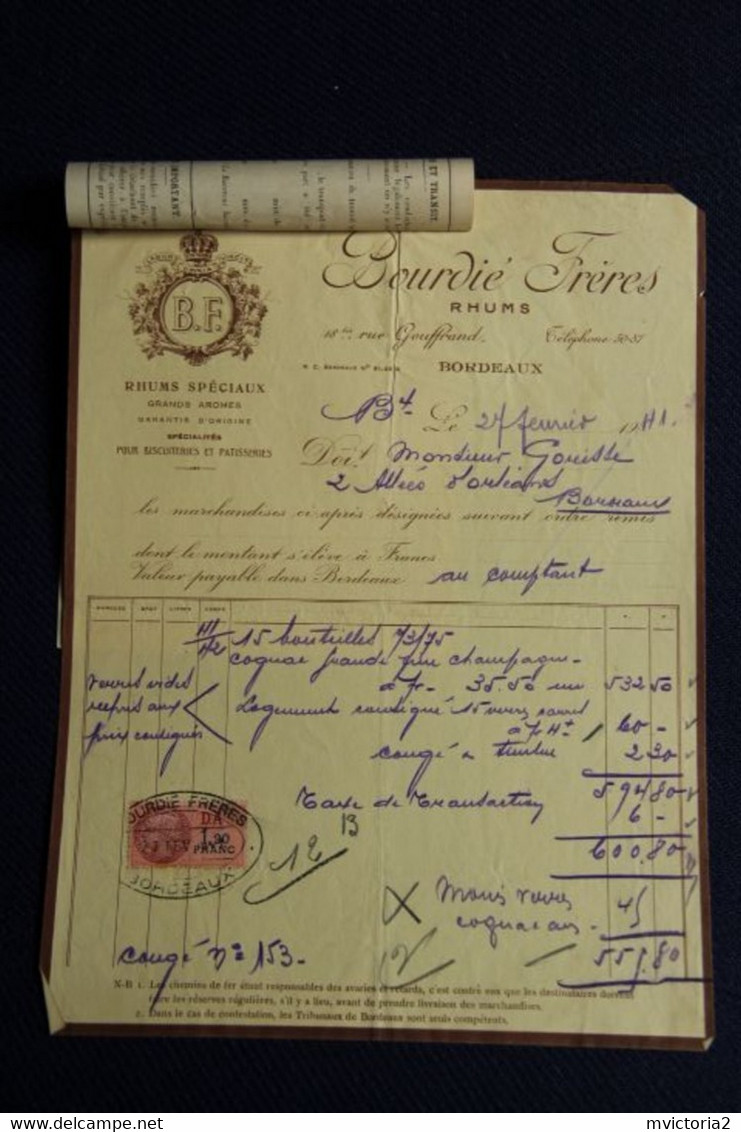 PORTANT
ET TRANSIT
Bourdié Frères
RHUMS
18 bis rue Gouffrand. Téléphone 50-37
BORDEAUX
B.F.
RHUMS SPÉCIAUX
GRANDS AROMES
GARANTIS D'ORIGINE
SPÉCIALITÉS
POUR BISCUITERIES ET PATISSERIES
Le 27 février 1941.
Doit Monsieur
2 Allées d'Orléans
Bordeaux
les marchandises ci après désignées suivant ordre remis
dont le montant s'élève à Francs
Valeur payable dans Bordeaux au comptant
15 bouteilles 73/75
cognac grande fine champagne
à fr- 35.50 une 532 50
verres vides
repris aux
prix consignés
Logement consigné 15 verres
à f 4 60 -
congé & timbre 2 30
594 80
Taxe de Transaction 6 -
600.80
BOURDIE FRERES
DA
1,20
FRANC
BORDEAUX
12
13
Moins verres
cognacais - 45
555.80
congé n° 153-
N-B 1. Les chemins de fer étant responsables des avaries et retards, c'est contre eux que les destinataires doivent
faire les réserves régulières, s'il y a lieu, avant de prendre livraison des marchandises.
2. Dans le cas de contestation, les Tribunaux de Bordeaux sont seuls compétents.
www.delcampe.net
mvictoria2